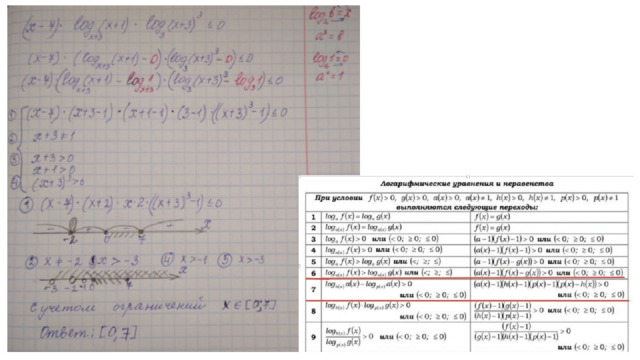 (x-7) · log_{x+3}(x+1) · log_3(x+3)^3 ≤ 0
(x-7) · (log_{x+3}(x+1) - 0) · (log_3(x+3)^3 - 0) ≤ 0
(x-7)·(log_{x+3}(x+1) - log_{x+3}1) · (log_3(x+3)^3 - log_3 1) ≤ 0
① (x-7)·(x+3-1)·(x+1-1)·(3-1)·((x+3)^3-1) ≤ 0
② x+3≠1
③ x+3>0
x+1>0
(x+3)^3>0
① (x-7)·(x+2)·x·2·((x+3)^3-1) ≤ 0
-2 0 7 x
② x≠-2 ③ x>-3 ④ x>-1 ⑤ x>-3
-3 -2 -1 0 7 x
С учетом ограничений x∈[0,7]
Ответ: [0,7]
log_a b = x
a^x = b
log_a 1 = 0
a^0 = 1
Логарифмические уравнения и неравенства
При условии f(x)>0, g(x)>0, a(x)>0, a(x)≠1, h(x)>0, h(x)≠1, p(x)>0, p(x)≠1
выполняются следующие переходы:
1 log_a f(x)=log_a g(x) f(x)=g(x)
2 log_{a(x)} f(x)=log_{a(x)} g(x) f(x)=g(x)
3 log_a f(x)>0 или (<0; ≥0; ≤0) (a-1)(f(x)-1)>0 или (<0; ≥0; ≤0)
4 log_{a(x)} f(x)>0 или (<0; ≥0; ≤0) (a(x)-1)(f(x)-1)>0 или (<0; ≥0; ≤0)
5 log_a f(x)>log_a g(x) или (<; ≥; ≤) (a-1)(f(x)-g(x))>0 или (<0; ≥0; ≤0)
6 log_{a(x)} f(x)>log_{a(x)} g(x) или (<; ≥; ≤) (a(x)-1)(f(x)-g(x))>0 или (<0; ≥0; ≤0)
7
или (<0; ≥0; ≤0) или (<0; ≥0; ≤0)
8 log_{h(x)} f(x)·log_{p(x)} g(x)>0
или (<0; ≥0; ≤0) (f(x)-1)(g(x)-1)/(h(x)-1)(p(x)-1)>0 или (<0; ≥0; ≤0)
9 log_{h(x)} f(x)/log_{p(x)} g(x)>0 или (<0; ≥0; ≤0)
или (<0; ≥0; ≤0)